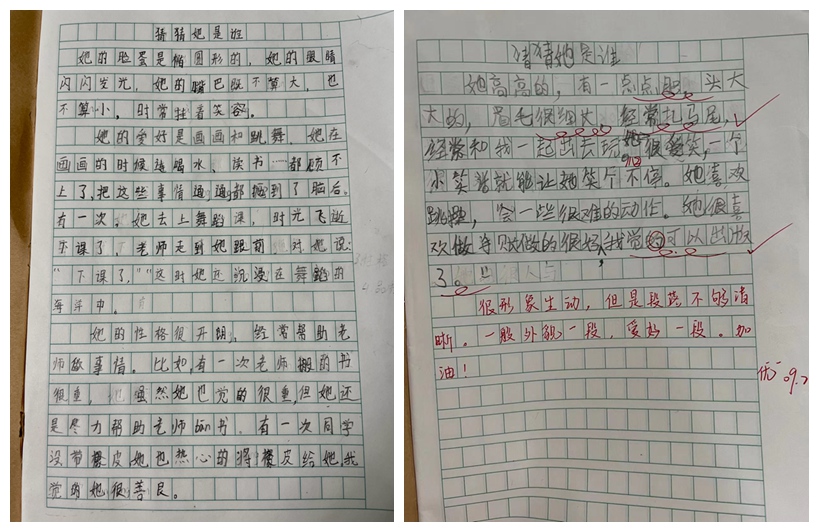 猜猜她是谁
她的脸蛋是椭圆形的，她的眼睛
闪闪发光，她的嘴巴既不算大，也
不算小，时常挂着笑容。
她的爱好是画画和跳舞，她在
画画的时候连喝水、读书……都顾不
上了，把这些事情通通都抛到了脑后。
有一次，她去上舞蹈课，时光飞逝
下课了，老师走到她跟前，对她说：
“下课了，”“这时她还沉浸在舞蹈的
海洋中。
她的性格很开朗，经常帮助老
师做事情。比如，有一次老师搬的书
很重，虽然她也觉的很重，但她还
是尽力帮助老师搬书，有一次同学
没带橡皮她也热心的将橡皮给她，我
觉的她很善良。
猜猜她是谁
她高高的，有一点点胖，头大
大的，眉毛很细长，经常扎马尾，
经常和我一起出去玩，她很爱笑，一个
小笑话就能让她笑个不停。她喜欢
跳操，会一些很难的动作。她很喜
欢做手账做的很好，我觉的可以出版
了。
很形象生动，但是段落不够清
晰。一般外貌一段，爱好一段。加
油！
优 09.